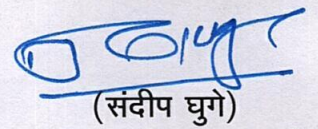 (संदीप घुगे)